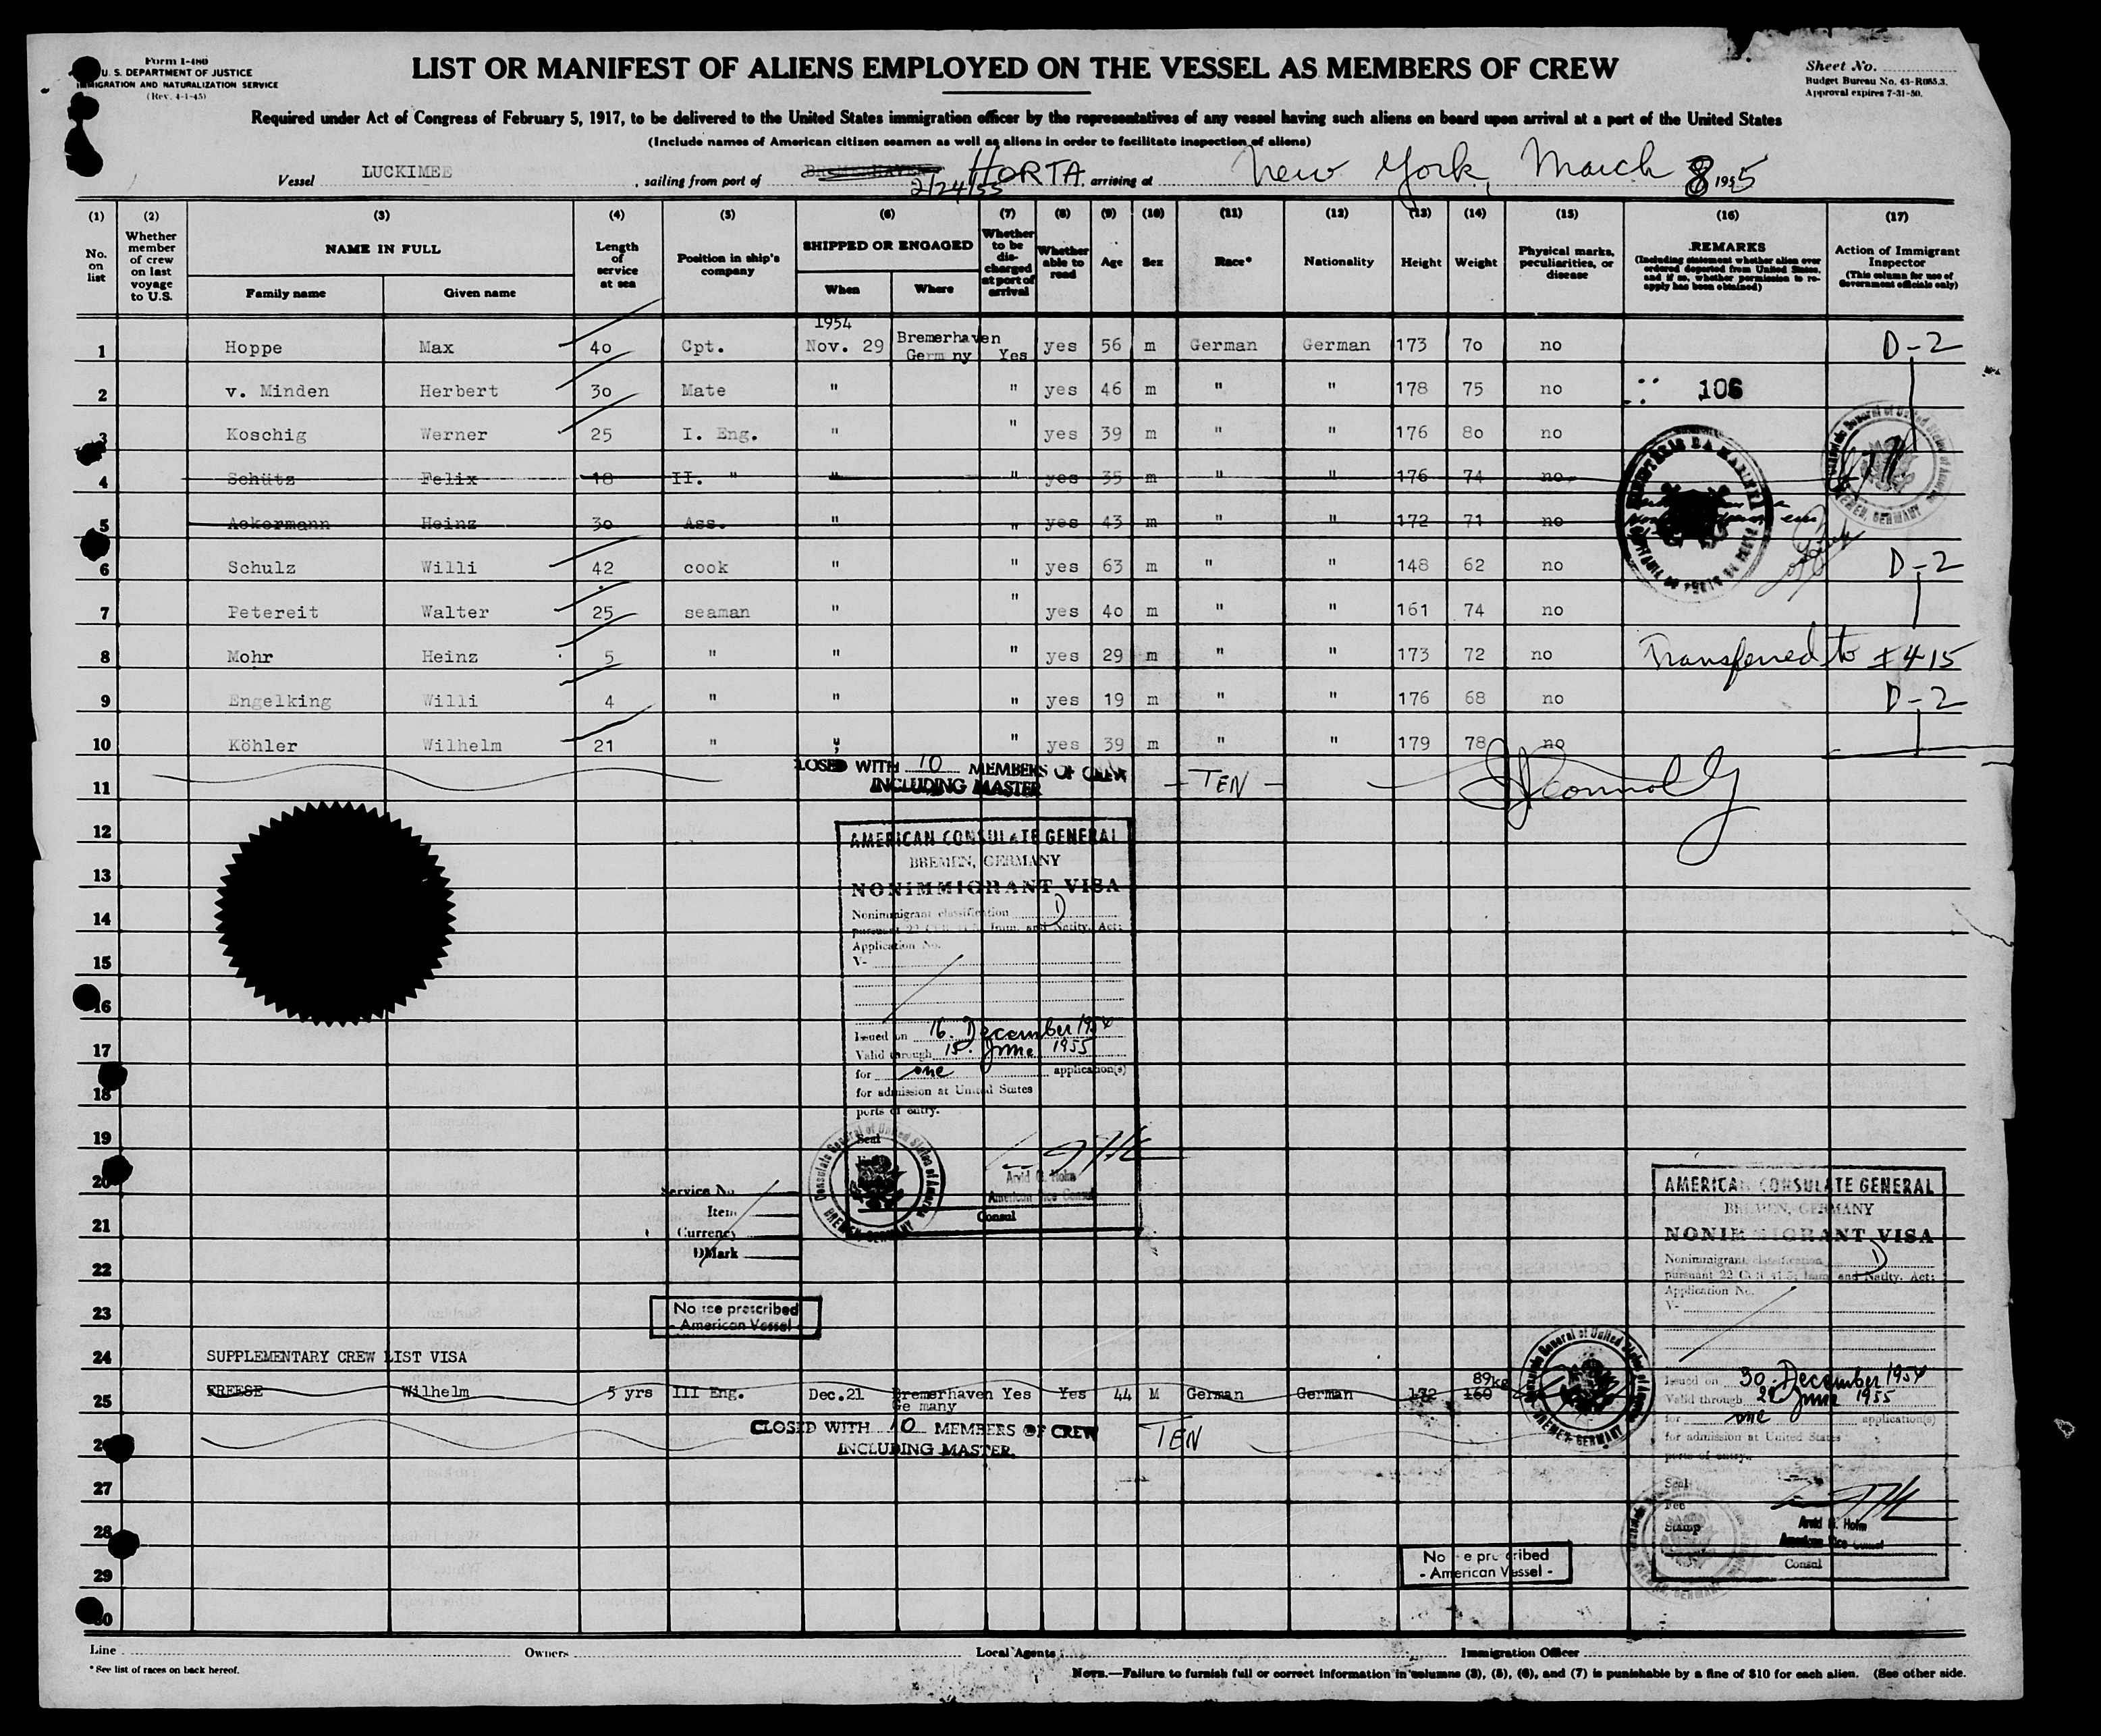 Form I-480
U. S. DEPARTMENT OF JUSTICE
IMMIGRATION AND NATURALIZATION SERVICE
(Rev. 4-1-45)
LIST OR MANIFEST OF ALIENS EMPLOYED ON THE VESSEL AS MEMBERS OF CREW
Sheet No.
Budget Bureau No. 43-R085.3.
Approval expires 7-31-50.
Required under Act of Congress of February 5, 1917, to be delivered to the United States immigration officer by the representatives of any vessel having such aliens on board upon arrival at a port of the United States
(Include names of American citizen seamen as well as aliens in order to facilitate inspection of aliens)
Vessel LUCKIMEE, sailing from port of BREMERHAVEN HORTA, arriving at New York, March 8 1955
2/24/55
(1) (2) (3) (4) (5) (6) (7) (8) (9) (10) (11) (12) (13) (14) (15) (16) (17)
No. on list
Whether member of crew on last voyage to U.S.
NAME IN FULL
Family name Given name
Length of service at sea
Position in ship's company
SHIPPED OR ENGAGED
When Where
Whether to be discharged at port of arrival
Whether able to read
Age
Sex
Race*
Nationality
Height
Weight
Physical marks, peculiarities, or disease
REMARKS
(Including statement whether alien ever ordered deported from United States, and if so, whether permission to reapply has been obtained)
Action of Immigrant Inspector
(This column for use of Government officials only)
1954
1 Hoppe Max 40 Cpt. Nov. 29 Bremerhaven Germ ny Yes yes 56 m German German 173 70 no D-2
2 v. Minden Herbert 30 Mate " " yes 46 m " " 178 75 no 106
3 Koschig Werner 25 I. Eng. " " yes 39 m " " 176 80 no
4 Schütz Felix 18 II. " " " yes 35 m " " 176 74 no
5 Ackermann Heinz 30 Ass. " " yes 43 m " " 172 71 no
6 Schulz Willi 42 cook " " yes 63 m " " 148 62 no D-2
7 Petereit Walter 25 seaman " " yes 40 m " " 161 74 no
8 Mohr Heinz 5 " " " yes 29 m " " 173 72 no Transferred to I 415
9 Engelking Willi 4 " " " yes 19 m " " 176 68 no D-2
10 Köhler Wilhelm 21 " " " yes 39 m " " 179 78 no
LOSED WITH 10 MEMBERS OF CREW
INCLUDING MASTER
- TEN -
11
12
13
14
15
16
17
18
19
20
21
22
23
AMERICAN CONSULATE GENERAL
BREMEN, GERMANY
NONIMMIGRANT VISA
Nonimmigrant classification D
pursuant 22 Imm. and Natlty. Act:
Application No.
V-
Issued on 16. December 1954
Valid through 15. June 1955
for one application(s)
for admission at United States
ports of entry.
Seal
Arvid G. Holm
American Vice Consul
Consul
Consulate General of United States of America
BREMEN, GERMANY
Service No.
Item
Currency
DMark
No fee prescribed
- American Vessel -
24 SUPPLEMENTARY CREW LIST VISA
25 FREESE Wilhelm 5 yrs III Eng. Dec.21 Bremerhaven Ge many Yes Yes 44 M German German 172 160 89kg
CLOSED WITH 10 MEMBERS OF CREW
INCLUDING MASTER.
TEN
26
27
28
29
30
AMERICAN CONSULATE GENERAL
BREMEN, GERMANY
NONIMMIGRANT VISA
Nonimmigrant classification D
pursuant 22 Imm. and Natlty. Act:
Application No.
V-
Issued on 30. December 1954
Valid through June 1955
for one application(s)
for admission at United States
ports of entry.
Seal
Fee
Stamp
Arvid G. Holm
American Vice Consul
Consul
Consulate General of United States of America
BREMEN, GERMANY
No e pre cribed
- American Vessel -
Line Owners Local Agents Immigration Officer
* See list of races on back hereof.
NOTE.—Failure to furnish full or correct information in columns (3), (5), (6), and (7) is punishable by a fine of $10 for each alien. (See other side.